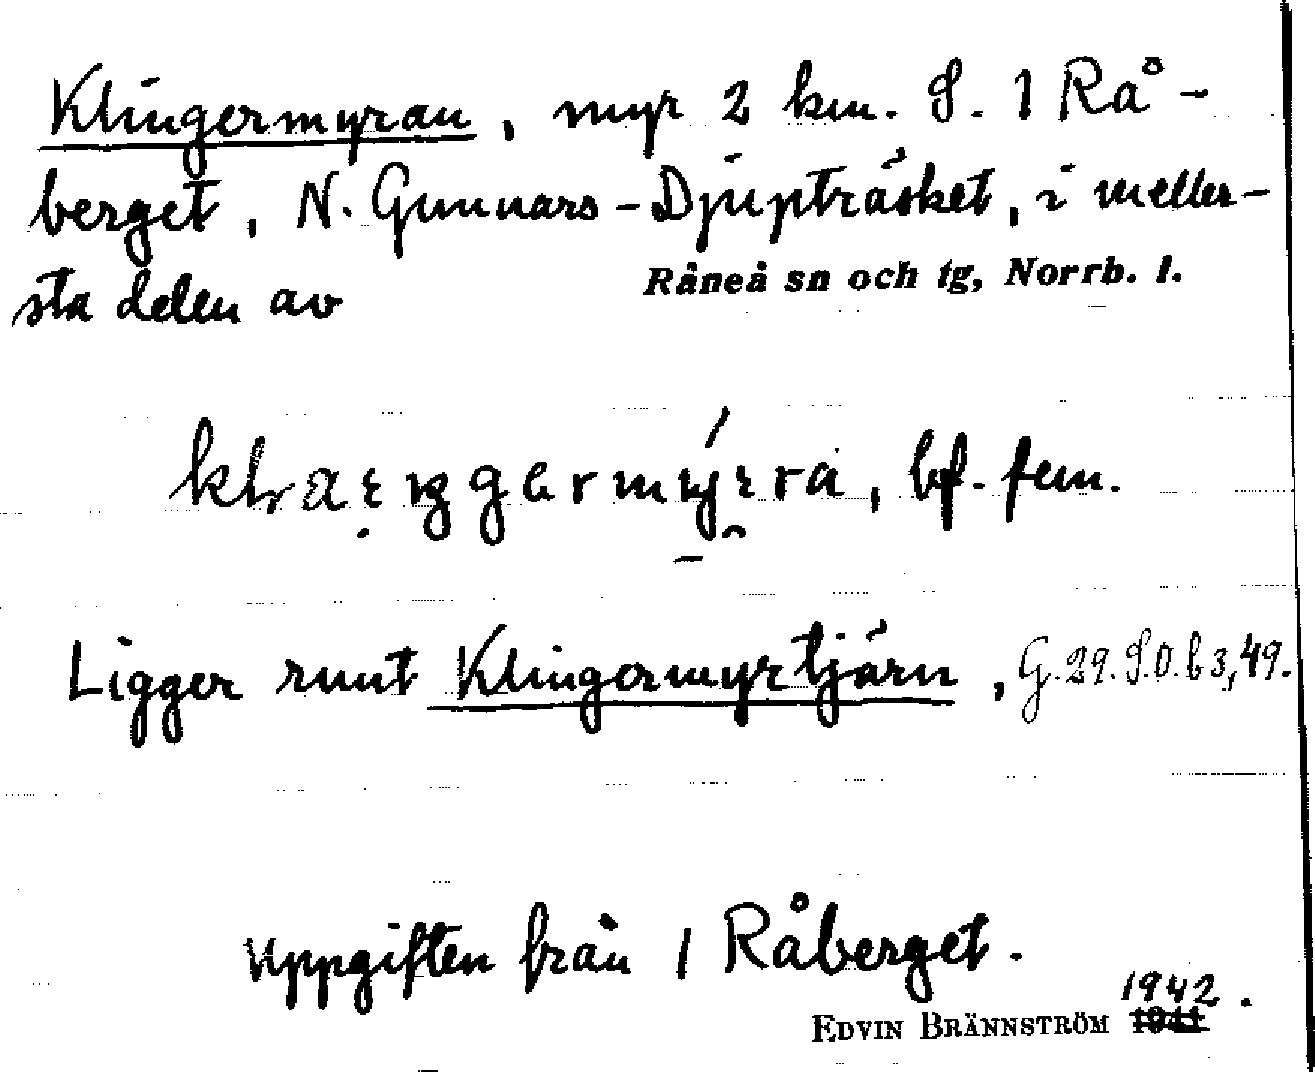 Klingermyran, myr 2 km. S. 1 Rå-
berget, N. Gunnars-Djupträsket, i meller-
sta delen av
Råneå sn och tg, Norrb. l.
bf. fem.
Ligger runt Klingermyrtjärn, G.29.S.O.b3,49.
Uppgiften från 1 Råberget.
1942.
EDVIN BRÄNNSTRÖM 1941